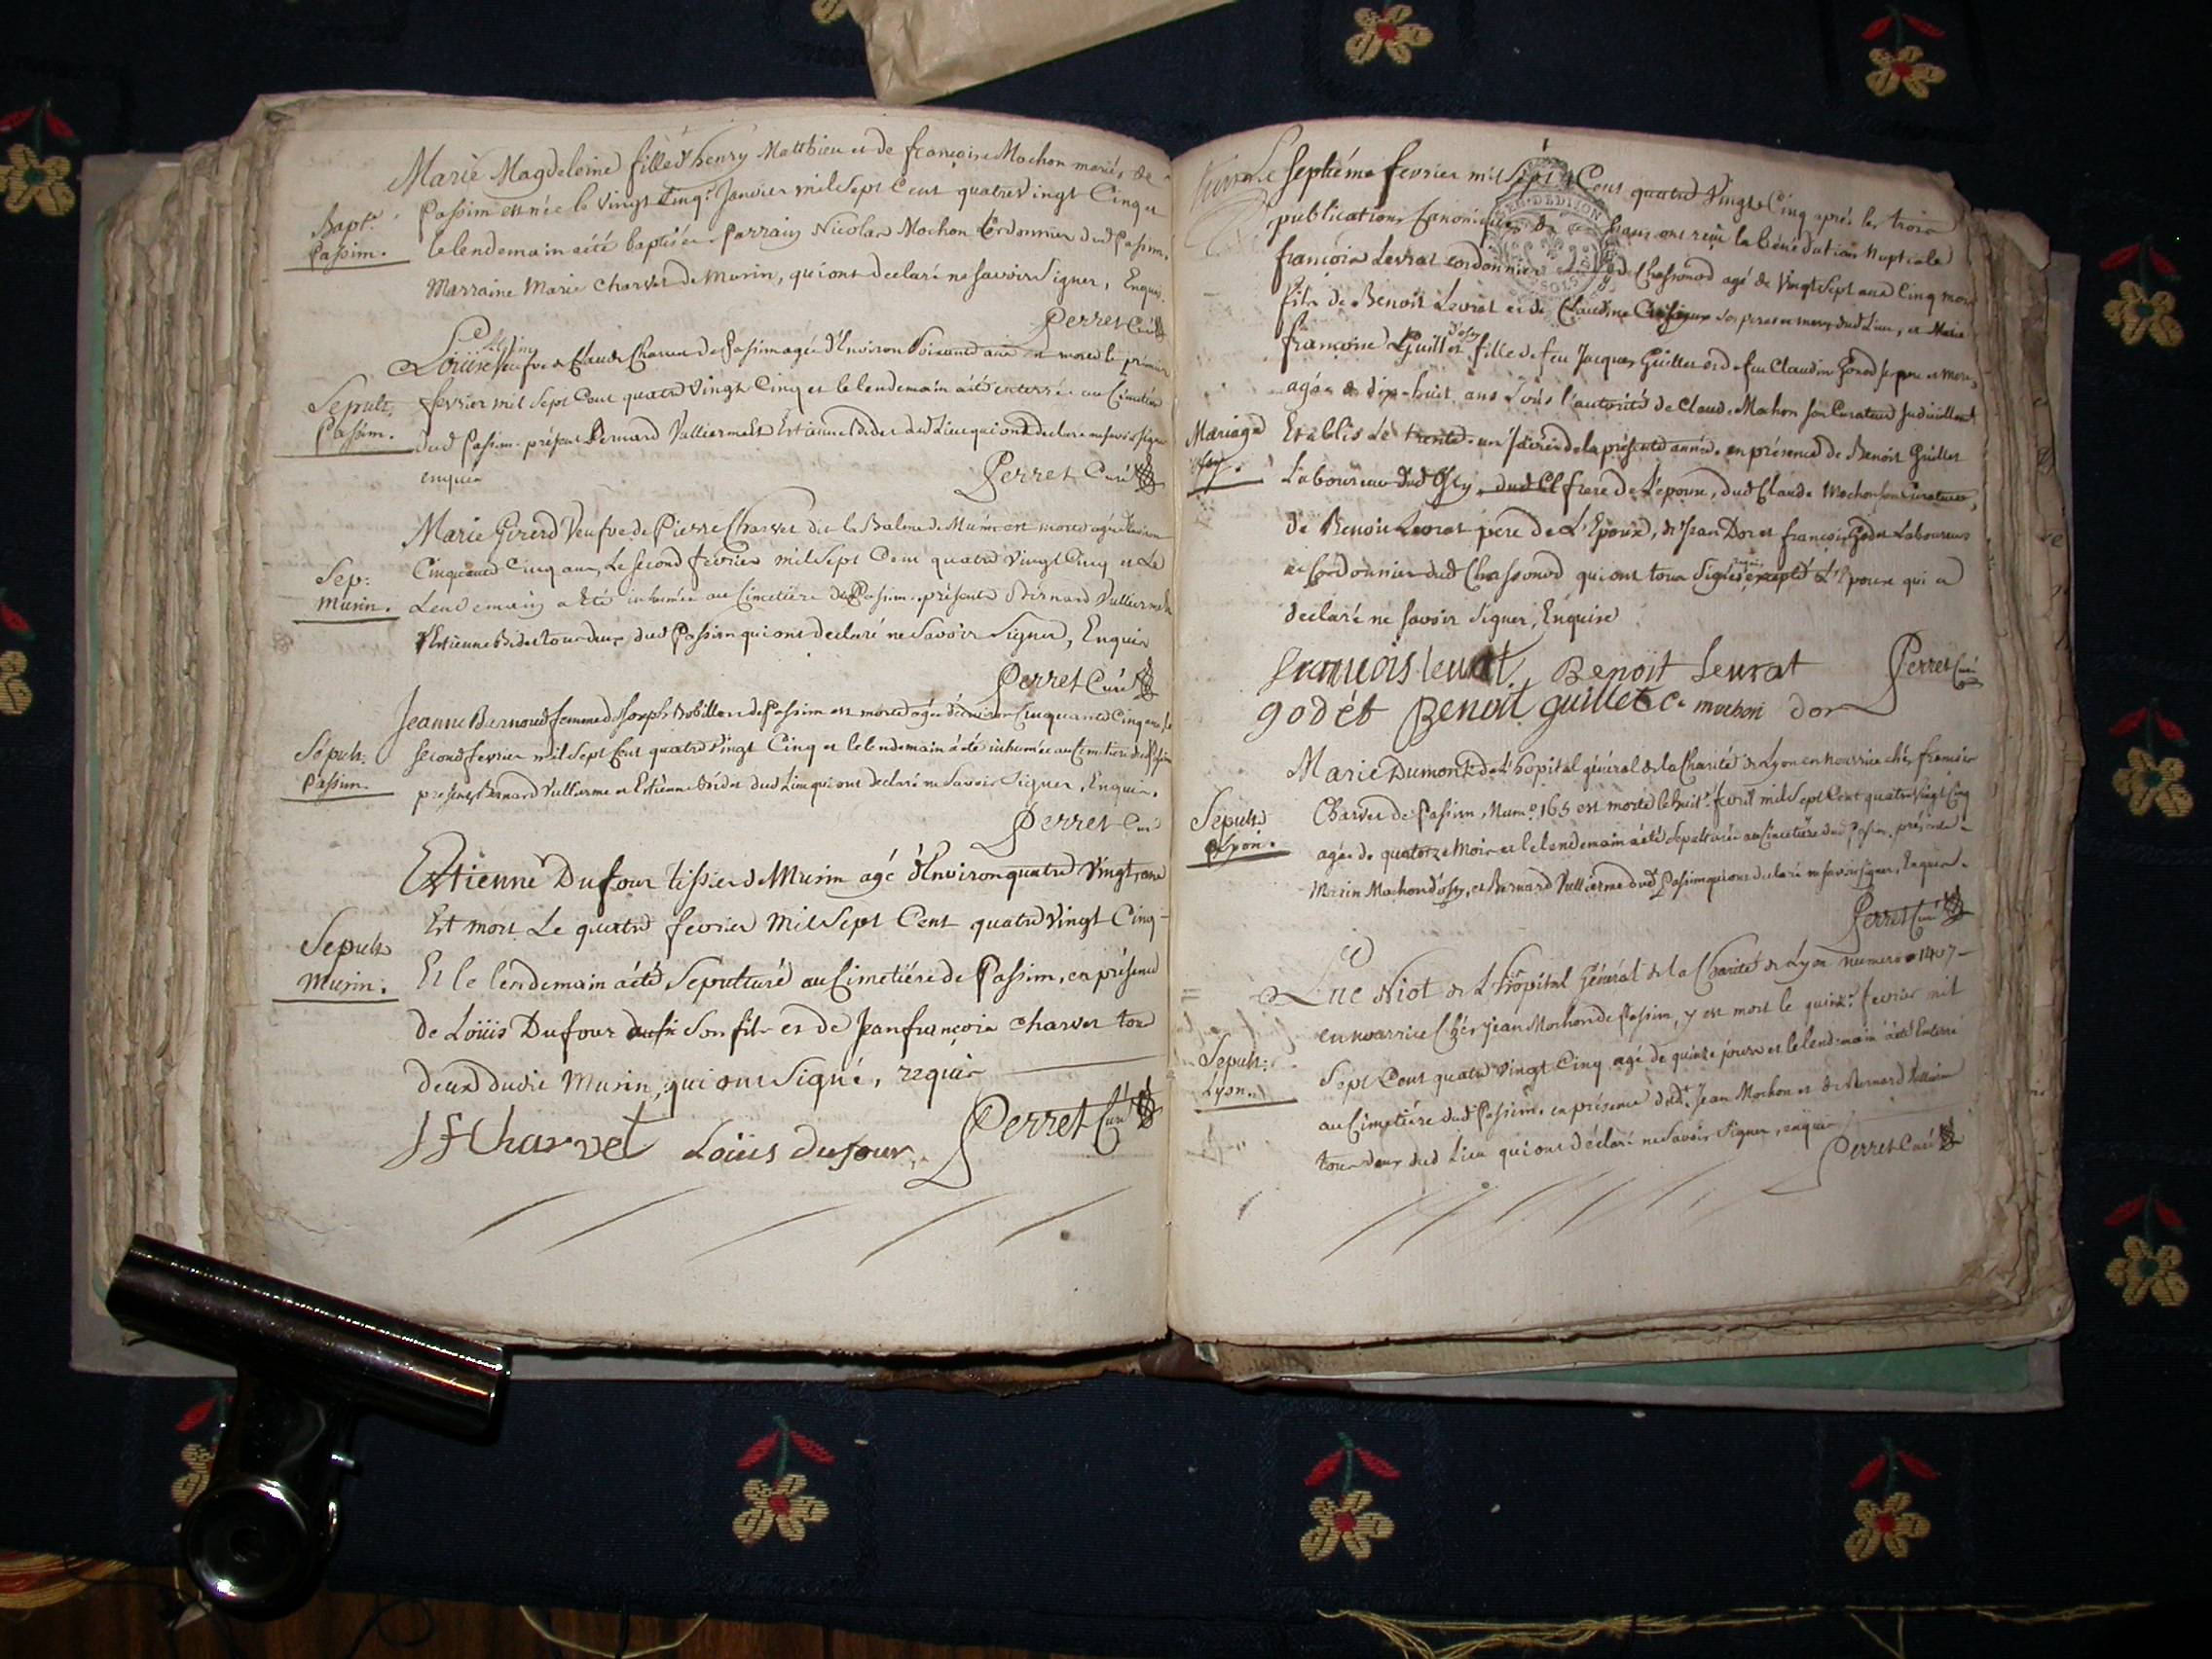 Marie Magdeleine fille d'henry Matthieu et de françoise Mochon mariés de
Bapt.
Passim.
Passim est née le Vingt Cinq.e Janvier mil Sept Cent quatre Vingt Cinq et
le lendemain a été baptisée. Parrain Nicolas Mochon Cordonnier dud Passim.
Marraine Marie Charvet de Murin, qui ont declaré ne savoir Signer, Enquis.
Perret Curé
Loüise veufve de Claude Charvet de Passim agée d'Environ Soixante ans est morte le premier
Sepult.
Passim.
fevrier mil Sept Cent quatre Vingt Cinq et le lendemain a été enterrée au Cimetière
dud Passim. présent Bernard Vullierme et Estienne Bidet dud Lieu qui ont declaré ne savoir signer
enquis
Perret Curé
Marie Girerd Veufve de Pierre Charvet dit la Balme de Murin est morte agée d'environ
Cinquante Cinq ans, Le second fevrier mil Sept Cent quatre Vingt Cinq et Le
Sep:
Murin.
Lendemain a été inhumée au Cimetière de Passim. présents Bernard Vullierme
Estienne Bidet tous deux dud Passim qui ont declaré ne Savoir Signer, Enquis
Perret Curé
Jeanne Bernoud femme de Joseph Robillon de Passim est morte agée d'environ Cinquante Cinq ans le
Sépult.
Passim.
second fevrier mil Sept Cent quatre Vingt Cinq et le lendemain a été inhumée au Cimetiere dud Passim
presents Bernard Vullierme et Estienne Bidet dud Lieu qui ont declaré ne Savoir Signer, Enquis.
Perret Curé
Estienne Dufour tissier de Murin agé d'Environ quatre Vingt ans
Est mort Le quatre fevrier Mil Sept Cent quatre Vingt Cinq
Sepult
Murin.
Et le lendemain a été Sepulturé au Cimetiére de Passim, en présence
de Loüis Dufour son fils et de Jean françois Charvet tous
deux dudit Murin, qui ont Signé, requis
JF Charvet Loüis dufour Perret Curé
Le Septiéme fevrier mil Sept Cent quatre Vingt Cinq aprés les trois
publications Canoniques ont reçu la bénédiction Nuptiale
françois Levrat cordonnier de Chassonod agé de Vingt Sept ans Cinq mois
fils de Benoit Levrat et de Claudine ses pere et mere dud Lieu, et Marie
françoise Guillet d'osy fille de feu Jacques Guillet et de feu Claudine Gonod ses pere et mere,
agée de dix-huit ans Sous l'autorité de Claude Mochon son Curateur judiciellement
Mariage
Etablis Le trente-un Janvier de la présente année. en présence de Benoit Guillet
Laboureur dud Osy, frere de L'epouse, dud Claude Mochon son Curateur,
de Benoit Levrat pére de L'Epoux, de Jean Dor et françois Godet Laboureurs
et Cordonnier dud Chassonod qui ont tous Signés excepté L'Epouse qui a
declaré ne savoir Signer, Enquise
francois levrat Benoit Leurat Perret Curé
godét Benoit guillet C. mochon dor
Marie Dumont de L'hopital général de la Charité de Lyon en nourrice chés françois
Sepult
Lyon.
Charvet de Passim, Num.o 165 est morte le huit.e fevrier mil Sept Cent quatre Vingt Cinq
agée de quatorze Mois et le lendemain a été Sepulturée au Cimetiére dud Passim, présents
Marin Mochon d'osy, et Bernard Vullierme dud Passim qui ont declaré ne savoir signer, Enquis.
Perret Curé
Luc Niot de L'hopital Général de la Charité de Lyon numero 1407
en nourrice Chés Jean Mochon de Passim, y est mort le quinz.e fevrier mil
Sepult:
Lyon.
Sept Cent quatre Vingt Cinq agé de quinze jours et le lendemain a été Enterré
au Cimetiére dud Passim, en présence dud.t Jean Mochon et de Bernard Vullierme
tous deux dud Lieu qui ont déclaré ne Savoir Signer, enquis
Perret Curé